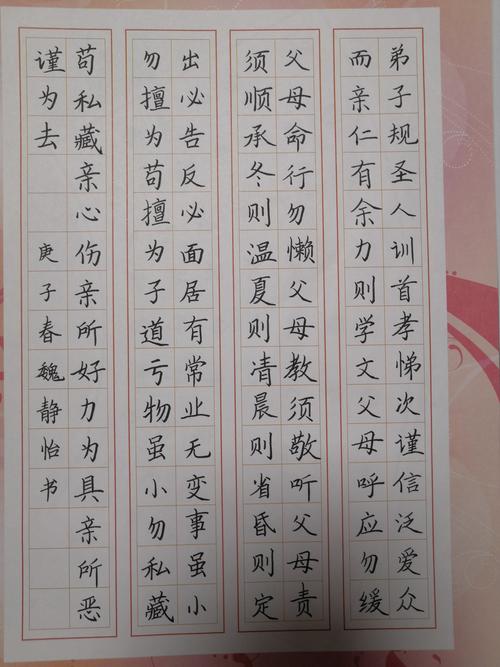 弟子规圣人训首孝悌次谨信泛爱众
而亲仁有余力则学文父母呼应勿缓
父母命行勿懒父母教须敬听父母责
须顺承冬则温夏则凊晨则省昏则定
出必告反必面居有常止无变事虽小
勿擅为苟擅为子道亏物虽小勿私藏
苟私藏亲心伤亲所好力为具亲所恶
谨为去 庚子春魏静怡书